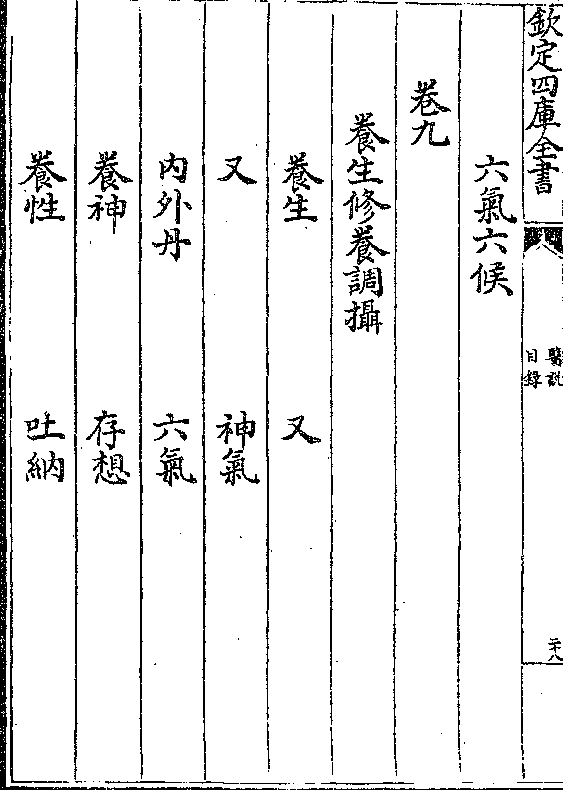 欽定四庫全書
醫說
目錄
二十八
六氣六候
卷九
養生修養調攝
養生 又
又 神氣
內外丹 六氣
養神 存想
養性 吐納